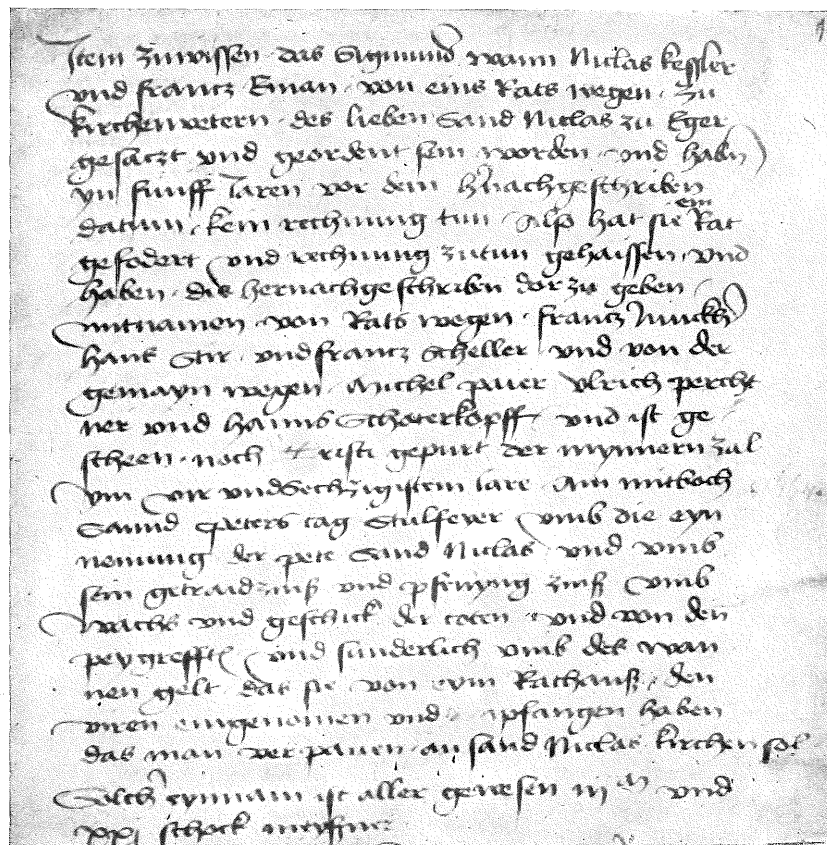 Item zuwissen das Sigmund wann Niclas kessler
vnd frantz Eman von eins Rats wegen zu
kirchenvetern des lieben Sand Niclas zu Eger
gesaczt vnd geordent sein worden vnd haben
yn funff Jaren vor dem hernachgeschriben
datum kein rechnung tun Also hat sie ein Rat
gefodert vnd rechnung zutun gehaissen vnd
haben die hernachgeschriben dorzu geben
mitnamen von Rats wegen frantz
hans Stir vnd frantz Scheller vnd von der
gemayn wegen Michel pauer vlrich percht
ner vnd hanns Schoterkopff vnd ist ge
scheen noch Cristi gepurt der mynnern zal
ym vir vndsechzigistem Iare Am mitboch
Sannd Peters tag Stulfeyer vmb die eyn
nemung der pete Sand Niclas vnd vmb
sein getraidzinß vnd pfenyng zinß vmb
wachs vnd geschick der toten vnd von den
peygrefften vnd sunderlich vmb des wan
nen gelt das sie von eym Rathauß den
viren eingenomen vnd enpfangen haben
das man ver pauen an sand Niclas kirchen sol
Solch eynnam ist aller gewesen iij m vnd
xxj schock meißner